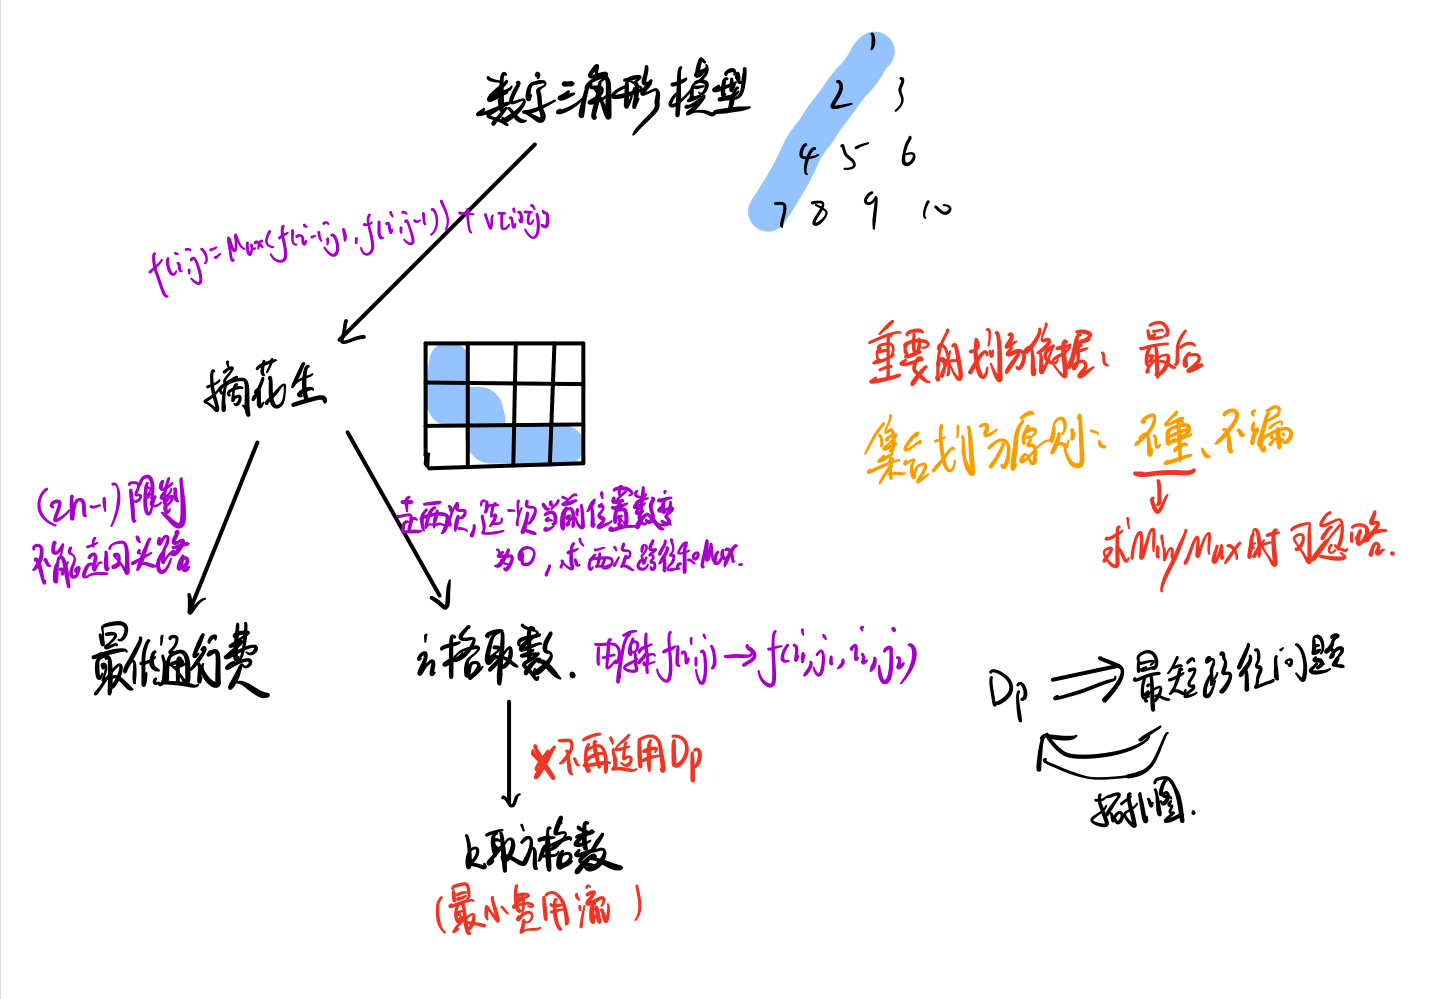 数字三角形模型
1
2 3
4 5 6
7 8 9 10
f(i,j)=Max(f(i-1,j), f(i,j-1)) + v[i][j]
摘花生
重要的划分依据: 最后
集合划分原则: 不重、不漏
求Min/Max时可忽略.
(2n-1)限制
不能走回头路
走两次,选一次当前位置数变
为0,求两次路径和Max.
最低通行费
方格取数.
由原本f(i,j)→f(i1,j1,i2,j2)
Dp ⇒ 最短路径问题
拓扑图.
不再适用Dp
K取方格数
(最小费用流)